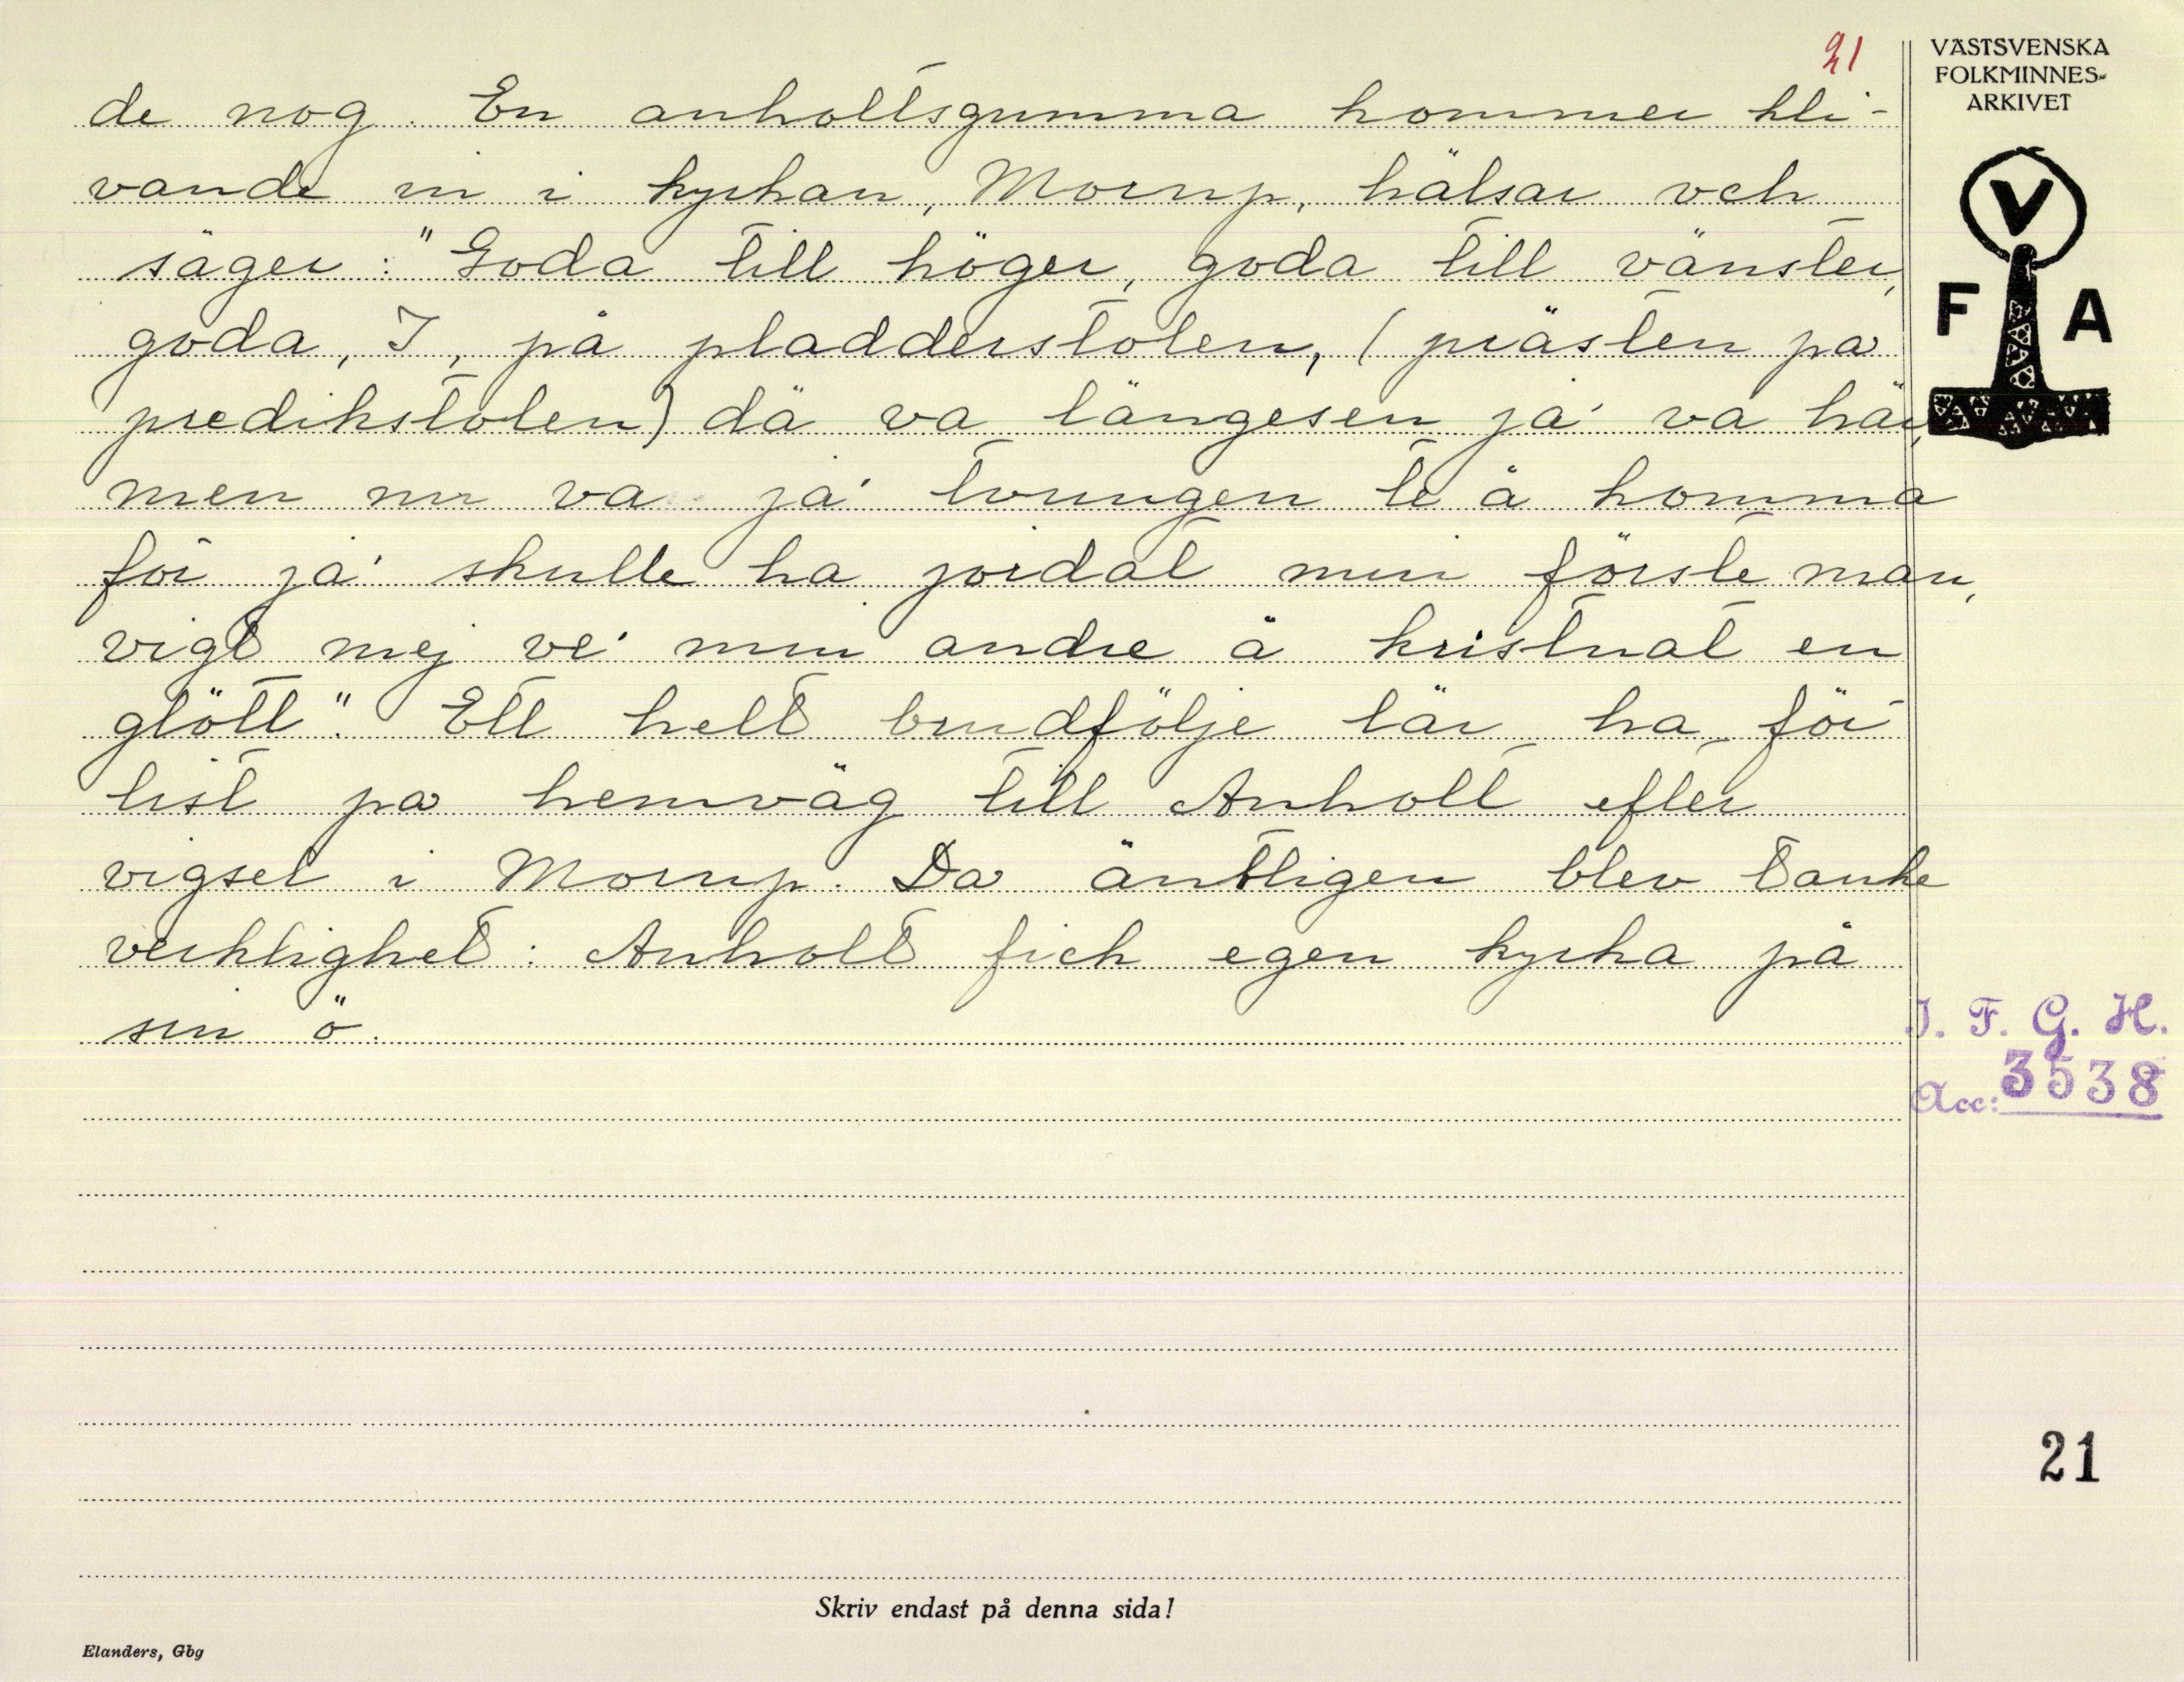 21
de nog. En anholtsgumma kommer kli-
vande in i kyrkan, Morup, hälsar och
säger: "Goda till höger, goda till vänster,
goda, I, på pladderstolen, (prästen på
predikstolen) dä va längesen ja' va här,
men nu va ja' tvungen te å komma
för ja' skulle ha jordat min förste man,
vigt mej ve' min andre å kristnat en
glött". Ett helt brudfölje lär ha för
list på hemväg till Anholt efter
vigsel i Morup. Då äntligen blev tanke
verklighet: Anholt fick egen kyrka på
sin ö.
VÄSTSVENSKA
FOLKMINNES-
ARKIVET
V
F A
I. F. G. H.
Acc: 3538
21
Skriv endast på denna sida!
Elanders, Gbg